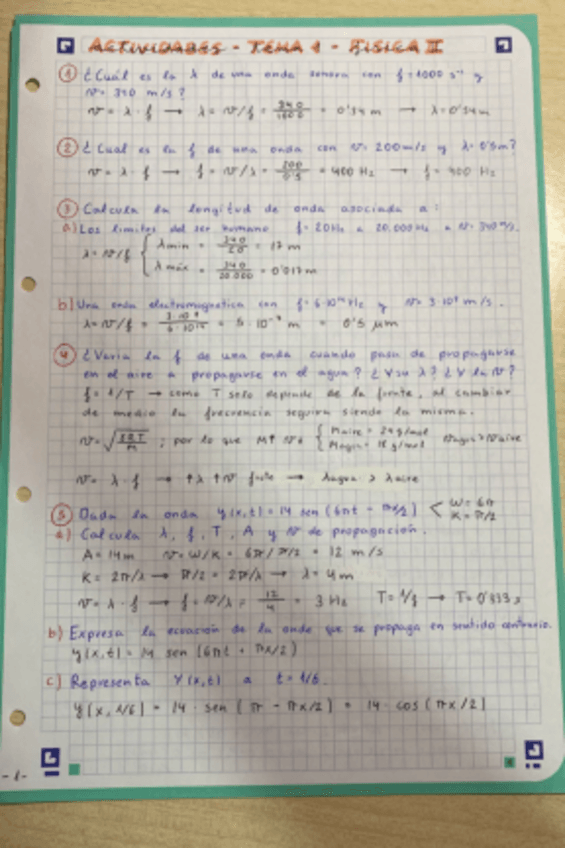 ACTIVIDADES - TEMA 1 - FISICA II
① ¿Cuál es la λ de una onda sonora con f = 1000 s⁻¹ y
v = 340 m/s?
v = λ · f → λ = v/f = 340/1000 = 0'34 m → λ = 0'34 m
② ¿Cual es la f de una onda con v = 200 m/s y λ = 0'5 m?
v = λ · f → f = v/λ = 200/0'5 = 400 Hz → f = 400 Hz
③ Calcula la longitud de onda asociada a:
a) Los limites del ser humano f = 20 Hz a 20.000 Hz a v = 340 m/s.
λ = v/f { λmin = 340/20 = 17 m
λmáx = 340/20.000 = 0'017 m
b) Una onda electromagnetica con f = 6·10¹⁴ Hz y v = 3·10⁸ m/s.
λ = v/f = 3·10⁸/6·10¹⁴ = 5·10⁻⁷ m = 0'5 μm
④ ¿Varia la f de una onda cuando pasa de propagarse
en el aire a propagarse en el agua? ¿Y su λ? ¿Y la v?
f = 1/T → como T solo depende de la fuente, al cambiar
de medio la frecuencia seguira siendo la misma.
; por lo que M↑ { Maire = 29 g/mol
Magua = 18 g/mol vagua > vaire
v = λ · f → ↑λ ↑v → λagua > λaire
⑤ Dada la onda y(x,t) = 14 sen (6πt - πx/2) < W = 6π
K = π/2
a) Calcula λ, f, T, A y v de propagación.
A = 14 m v = W/K = 6π/π/2 = 12 m/s
K = 2π/λ → π/2 = 2π/λ → λ = 4 m
v = λ · f → f = v/λ = 12/4 = 3 Hz T = 1/f → T = 0'333 s
b) Expresa la ecuación de la onda que se propaga en sentido contrario.
y(x,t) = 14 sen (6πt + πx/2)
c) Representa Y(x,t) a t = 1/6.
y(x, 1/6) = 14 · sen (π - πx/2) = 14 · cos (πx/2)
-1-